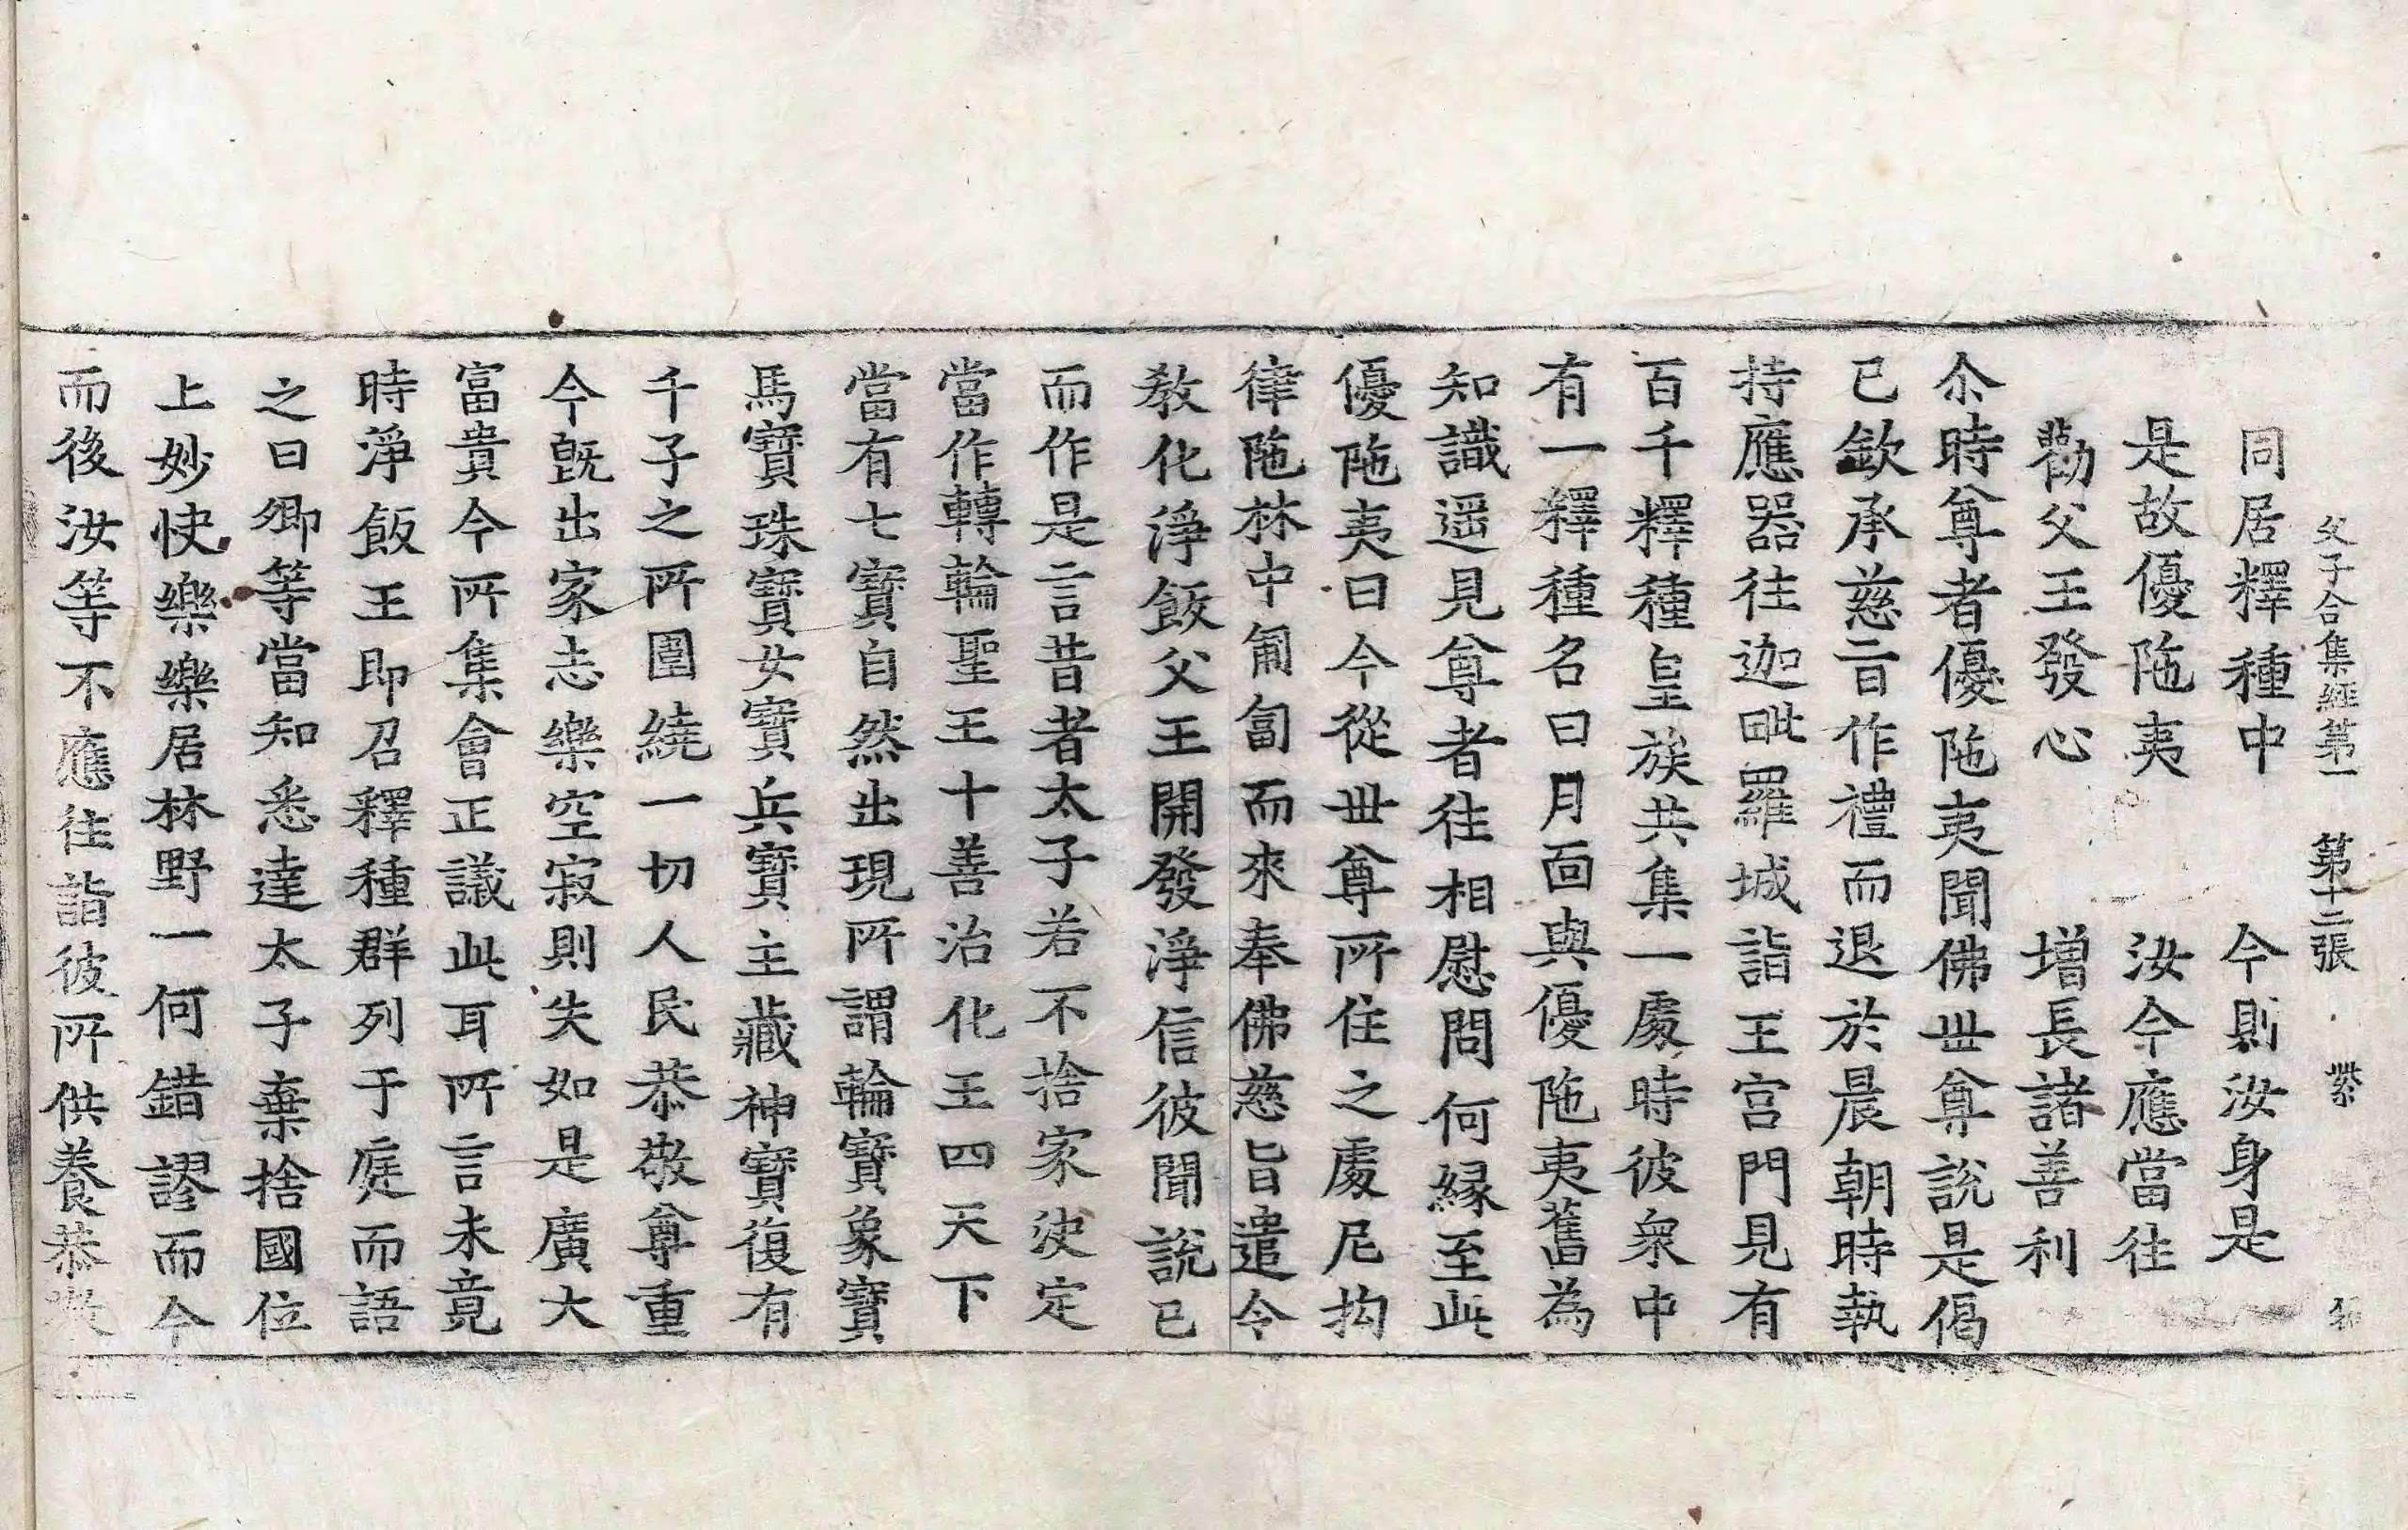 父子合集經第一 第十二張 紫
同居釋種中 今則汝身是
是故優陁夷 汝今應當往
勸父王發心 增長諸善利
尒時尊者優陁夷聞佛世尊說是偈
已欽承慈旨作禮而退於晨朝時執
持應器往迦毗羅城詣王宮門見有
百千釋種皇族共集一處時彼衆中
有一釋種名曰月面與優陁夷舊為
知識遥見尊者往相慰問何縁至此
優陁夷曰今從世尊所住之處尼拘
律陁林中匍匐而來奉佛慈旨遣令
教化淨飯父王開發淨信彼聞說已
而作是言昔者太子若不捨家決定
當作轉輪聖王十善治化王四天下
當有七寶自然出現所謂輪寶象寶
馬寶珠寶女寶兵寶主藏神寶復有
千子之所圍繞一切人民恭敬尊重
今旣出家志樂空寂則失如是廣大
富貴今所集會正議此耳所言未竟
時淨飯王即召釋種群列于庭而語
之曰卿等當知悉達太子棄捨國位
上妙快樂樂居林野一何錯謬而今
而後汝等不應往詣彼所供養恭敬